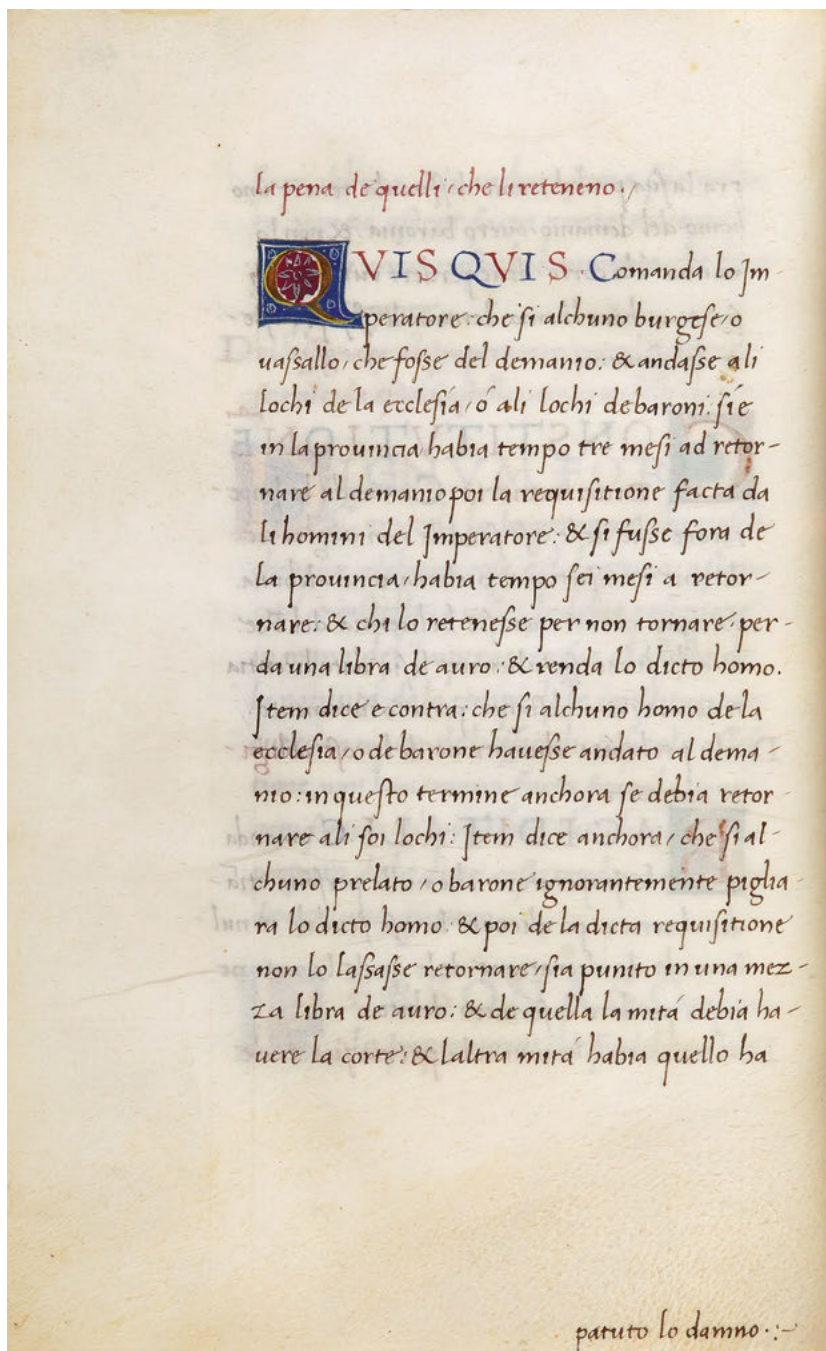 la pena de quelli / che li reteneno ·/
QVIS QVIS · Comanda lo Im-
peratore: che si alchuno burgese / o
uassallo / che fosse del demanio: & andasse a li
lochi de la ecclesia / o ali lochi de baroni: si é
in la prouincia habia tempo tre mesi ad retor-
nare al demanio poi la requisitione facta da
li homini del Imperatore: & si fusse fora de
la prouincia / habia tempo sei mesi a retor-
nare: & chi lo retenesse per non tornare / per-
da una libra de auro: & renda lo dicto homo.
Item dice e contra: che si alchuno homo de la
ecclesia / o de barone hauesse andato al dema-
nio: in questo termine anchora se debia retor-
nare ali soi lochi: Item dice anchora / che si al-
chuno prelato / o barone ignorantemente piglia-
ra lo dicto homo: & poi de la dicta requisitione
non lo lassasse retornare / sia punito in una mez-
za libra de auro: & de quella la mitá debia ha-
uere la corte: & laltra mitá habia quello ha
patuto lo damno ·:-